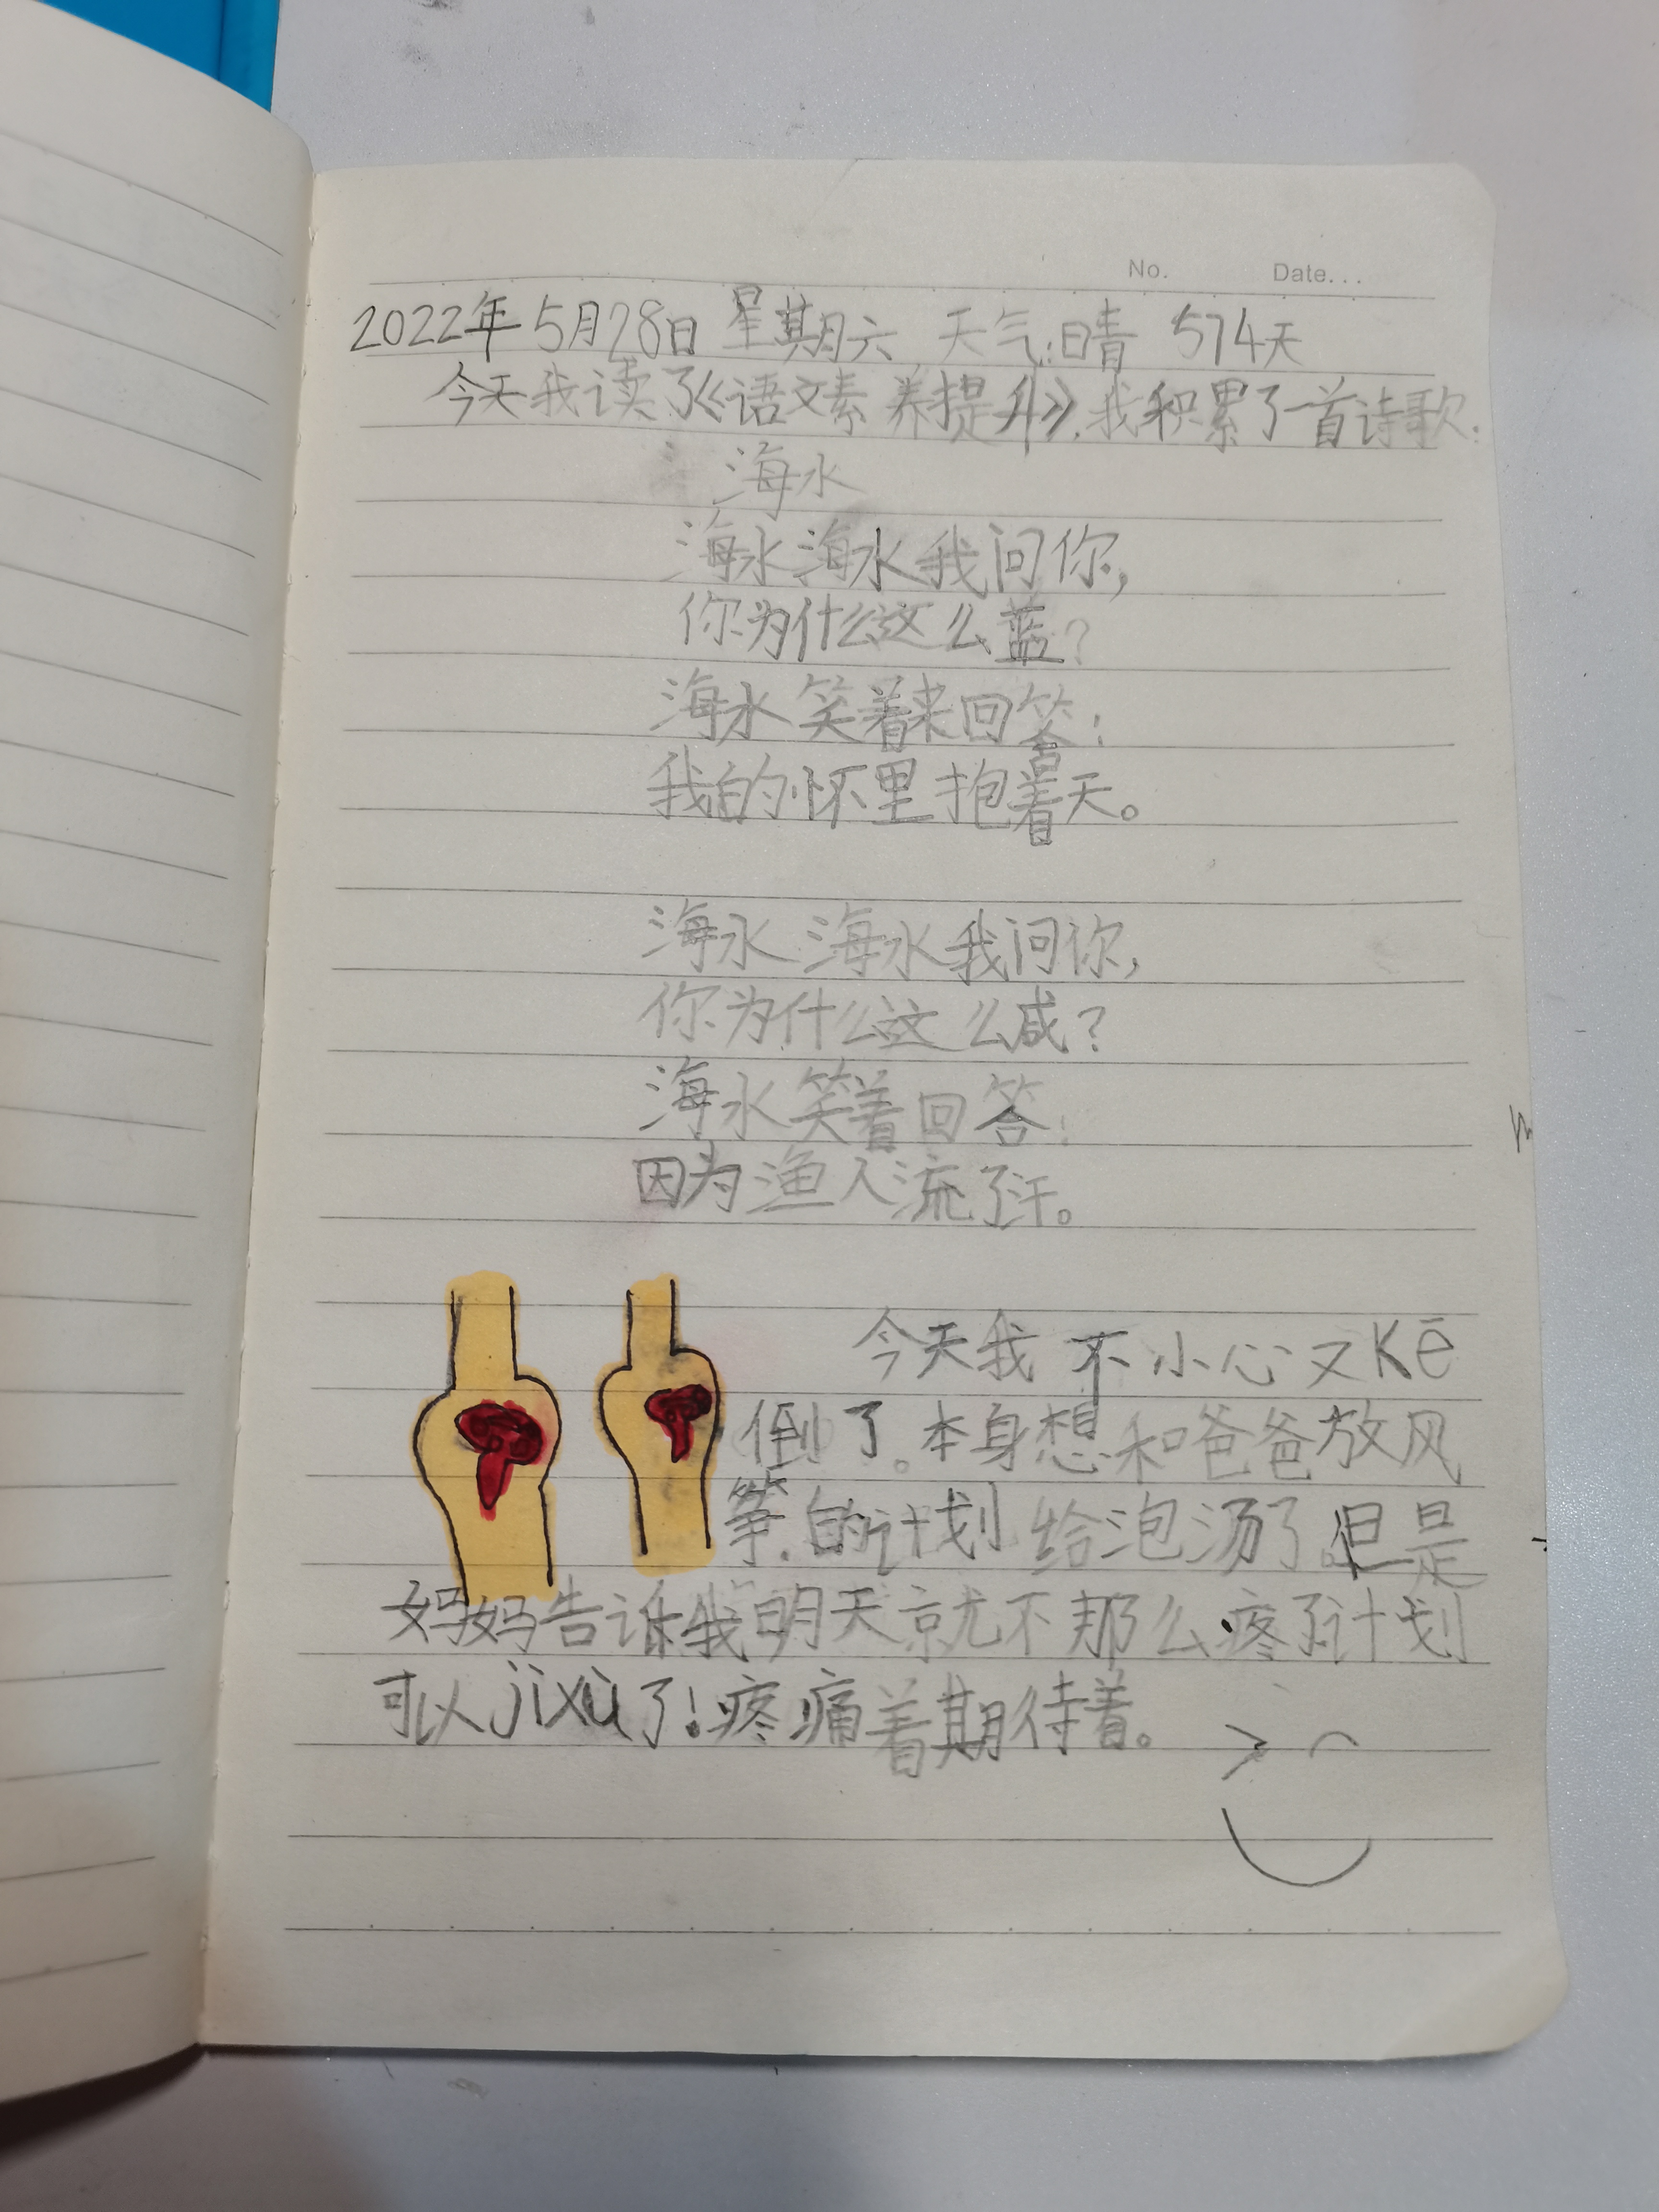 No. Date...
2022年5月28日 星期六 天气:晴 574天
今天我读了《语文素养提升》,我积累了一首诗歌:
海水
海水海水我问你,
你为什么这么蓝?
海水笑着来回答:
我的怀里抱着天。
海水海水我问你,
你为什么这么咸?
海水笑着回答:
因为渔人流了汗。
今天我不小心又Kē
倒了。本身想和爸爸放风
筝.的计划给泡汤了.但是
妈妈告诉我明天就不那么疼了计划
可以jìxù了!疼痛着期待着。